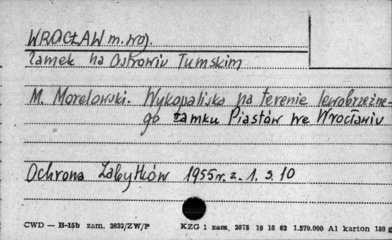 WROCŁAW m. woj.
Zamek na Ostrowiu Tumskim
M. Morelowski. Wykopaliska na terenie lewobrzeżne-
go zamku Piastów we Wrocławiu
Ochrona Zabytków 1955 r. z. 1. s. 10
CWD — H-15b zam. 2832/ZW/P KZG 1 zam. 2675 10 10 62 1.570.000 A1 karton 180 g